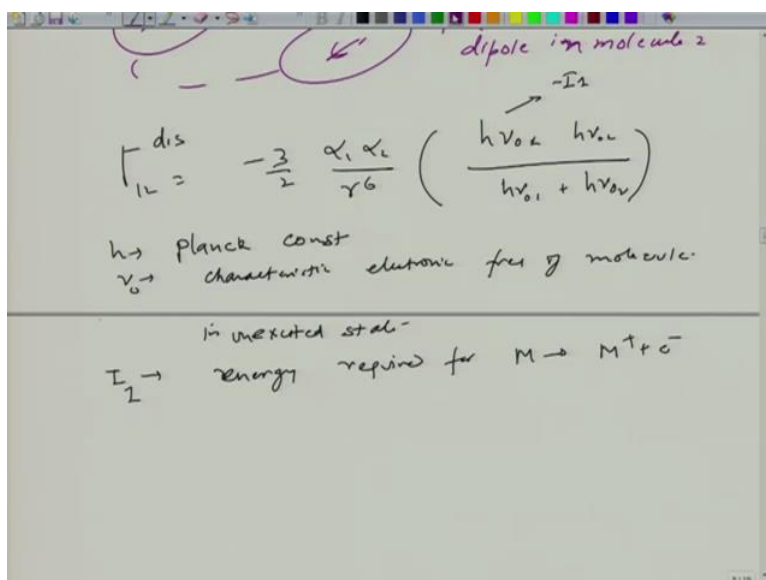 dipole in molecule 2
-I1
Γ12 dis = -3/2 α1 α2 / r6 ( hν02 hν02 / hν01 + hν02 )
h → Planck const
ν0 → characteristic electronic freq of molecule.
in unexcited state
I1 → energy required for M → M+ + e-